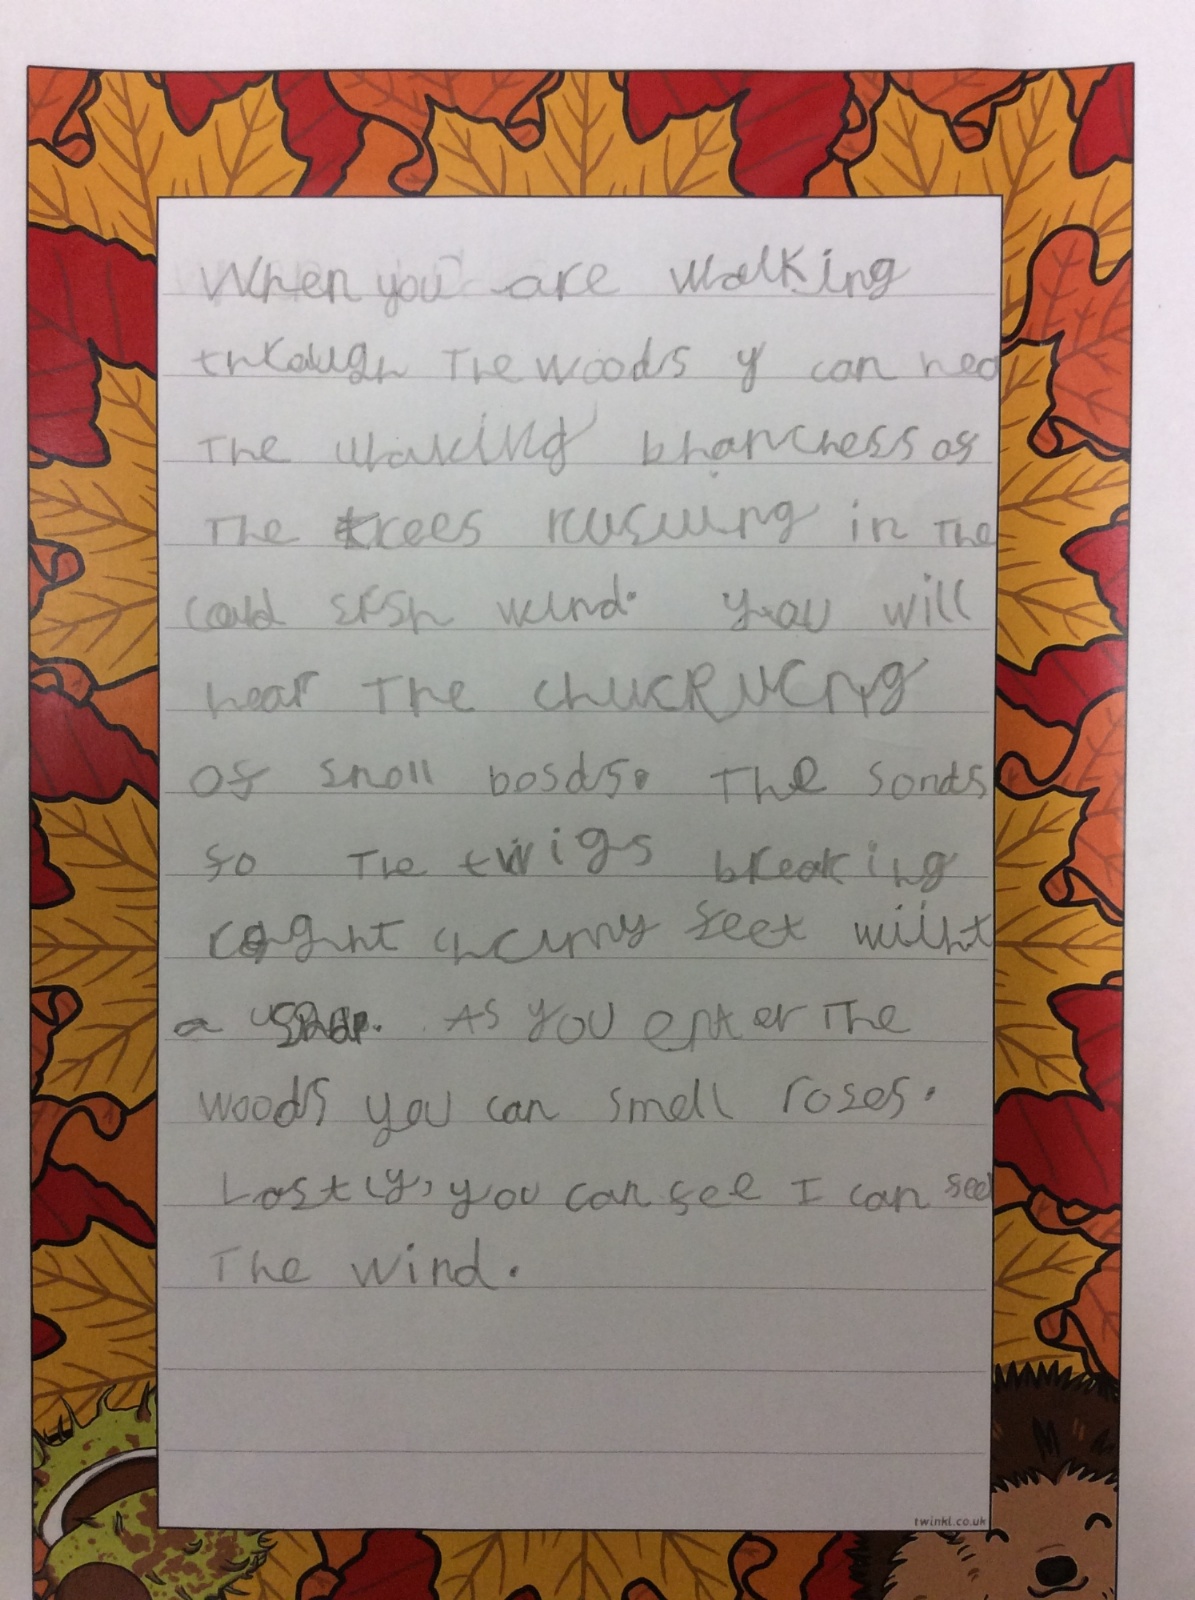 When you are walking
through The woods y can hea
The branchess of
The trees in The
could wind. you will
hear The
of smoll bosds. The sonds
fo The twigs breaking
feet
a As you enter The
woods you can smell roses.
Lostly, you can see I can see
The wind.
twinkl.co.uk